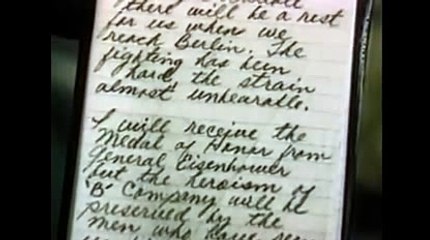 there will be a rest
for us when we
reach Berlin. The
fighting has been
hard, the strain
almost unbearable.
I will receive the
Medal of Honor from
General Eisenhower
but the heroism of
'B' Company will be
preserved by the
men who have